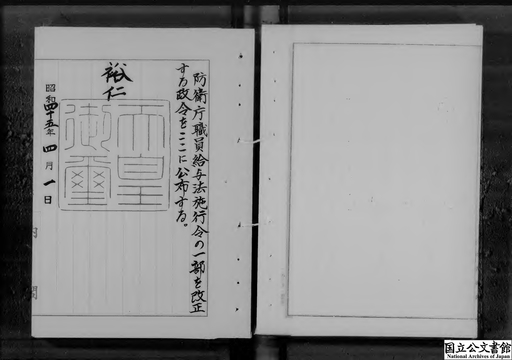 防衛庁職員給与法施行令の一部を改正
する政令をここに公布する。
裕仁
天皇御璽
昭和四十五年四月一日
内閣
国立公文書館
National Archives of Japan